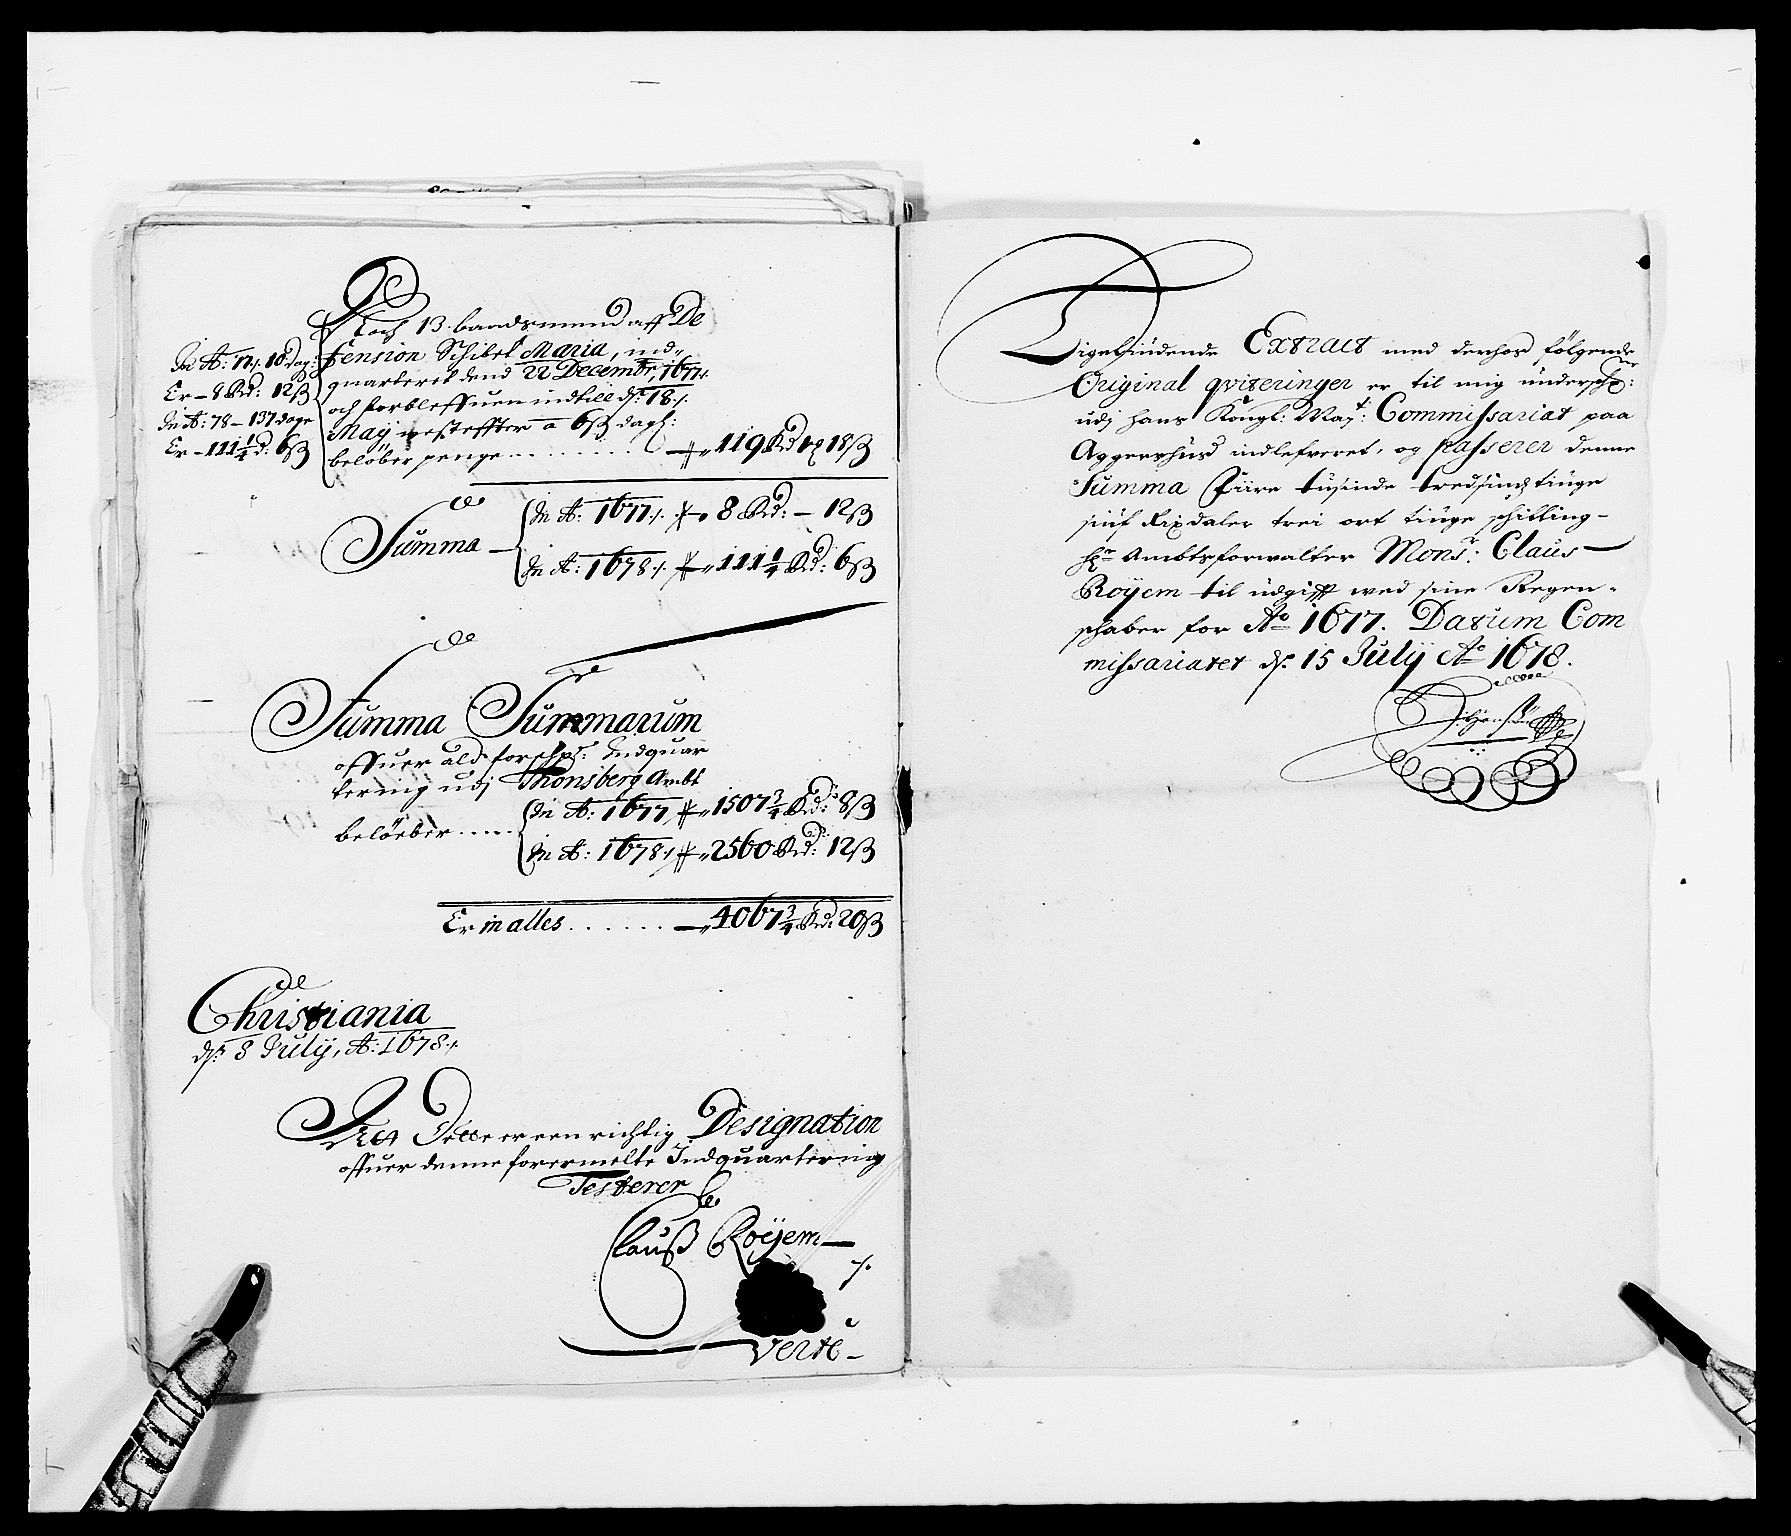 Noch 13 baadsmend aff De
fension Schibet Maria, ind„
quarterit dend 22 Decembr, 1677.
och forbleffuen indtill dn. 18.
Maÿ nesteffter a 6ß dagl:
beløber penge . . . . . . . . 119 Rd 18ß
In A: 77. 10 dag:
Er – 8 Rd: 12ß
In A: 78 – 137 dage
Er – 111 1/4 d: 6ß
Summa – In A: 1677 /. 8 Rd: – 12ß
In A: 1678 /. 111 1/4 Rd: 6ß
Summa Summarum
offuer ald forschr: Indquar
tering udj Thonsberg Ambt
beløeber In A: 1677 1507 3/4 Rd: 8ß
In A: 1678 /. 2560 Rd: 12ß
Er in alles . . . . . . 4067 3/4 Rd: 20ß
Christiania
dn. 8 Julÿ, A: 1678 /.
Att Dette er een richtig Designation
offuer denne forermelte Indquartering
Testerer
Clauß Röÿem
Verte
Ligelÿdende Extract med derhos fölgende
Original qviteringer er til mig underschr:
udj hans Kongl: Maÿt: Commissariat paa
Aggershuus indlefveret, og passerer denne
Summa Fiire tusinde tredsindstiuge
siuf Rixdaler trei ort tiuge schilling
hr. Ambtsforwalter Monsr: Claus
Röÿem til udgifft wed sine Regen-
schaber for Ao 1677. Datum Com
missariatet dn. 15 Julÿ Ao 1678.